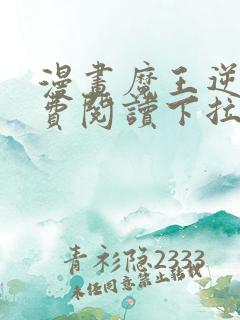 漫畫魔王逆
費閱讀下拉
青衫隐2333
未经同意禁止転载